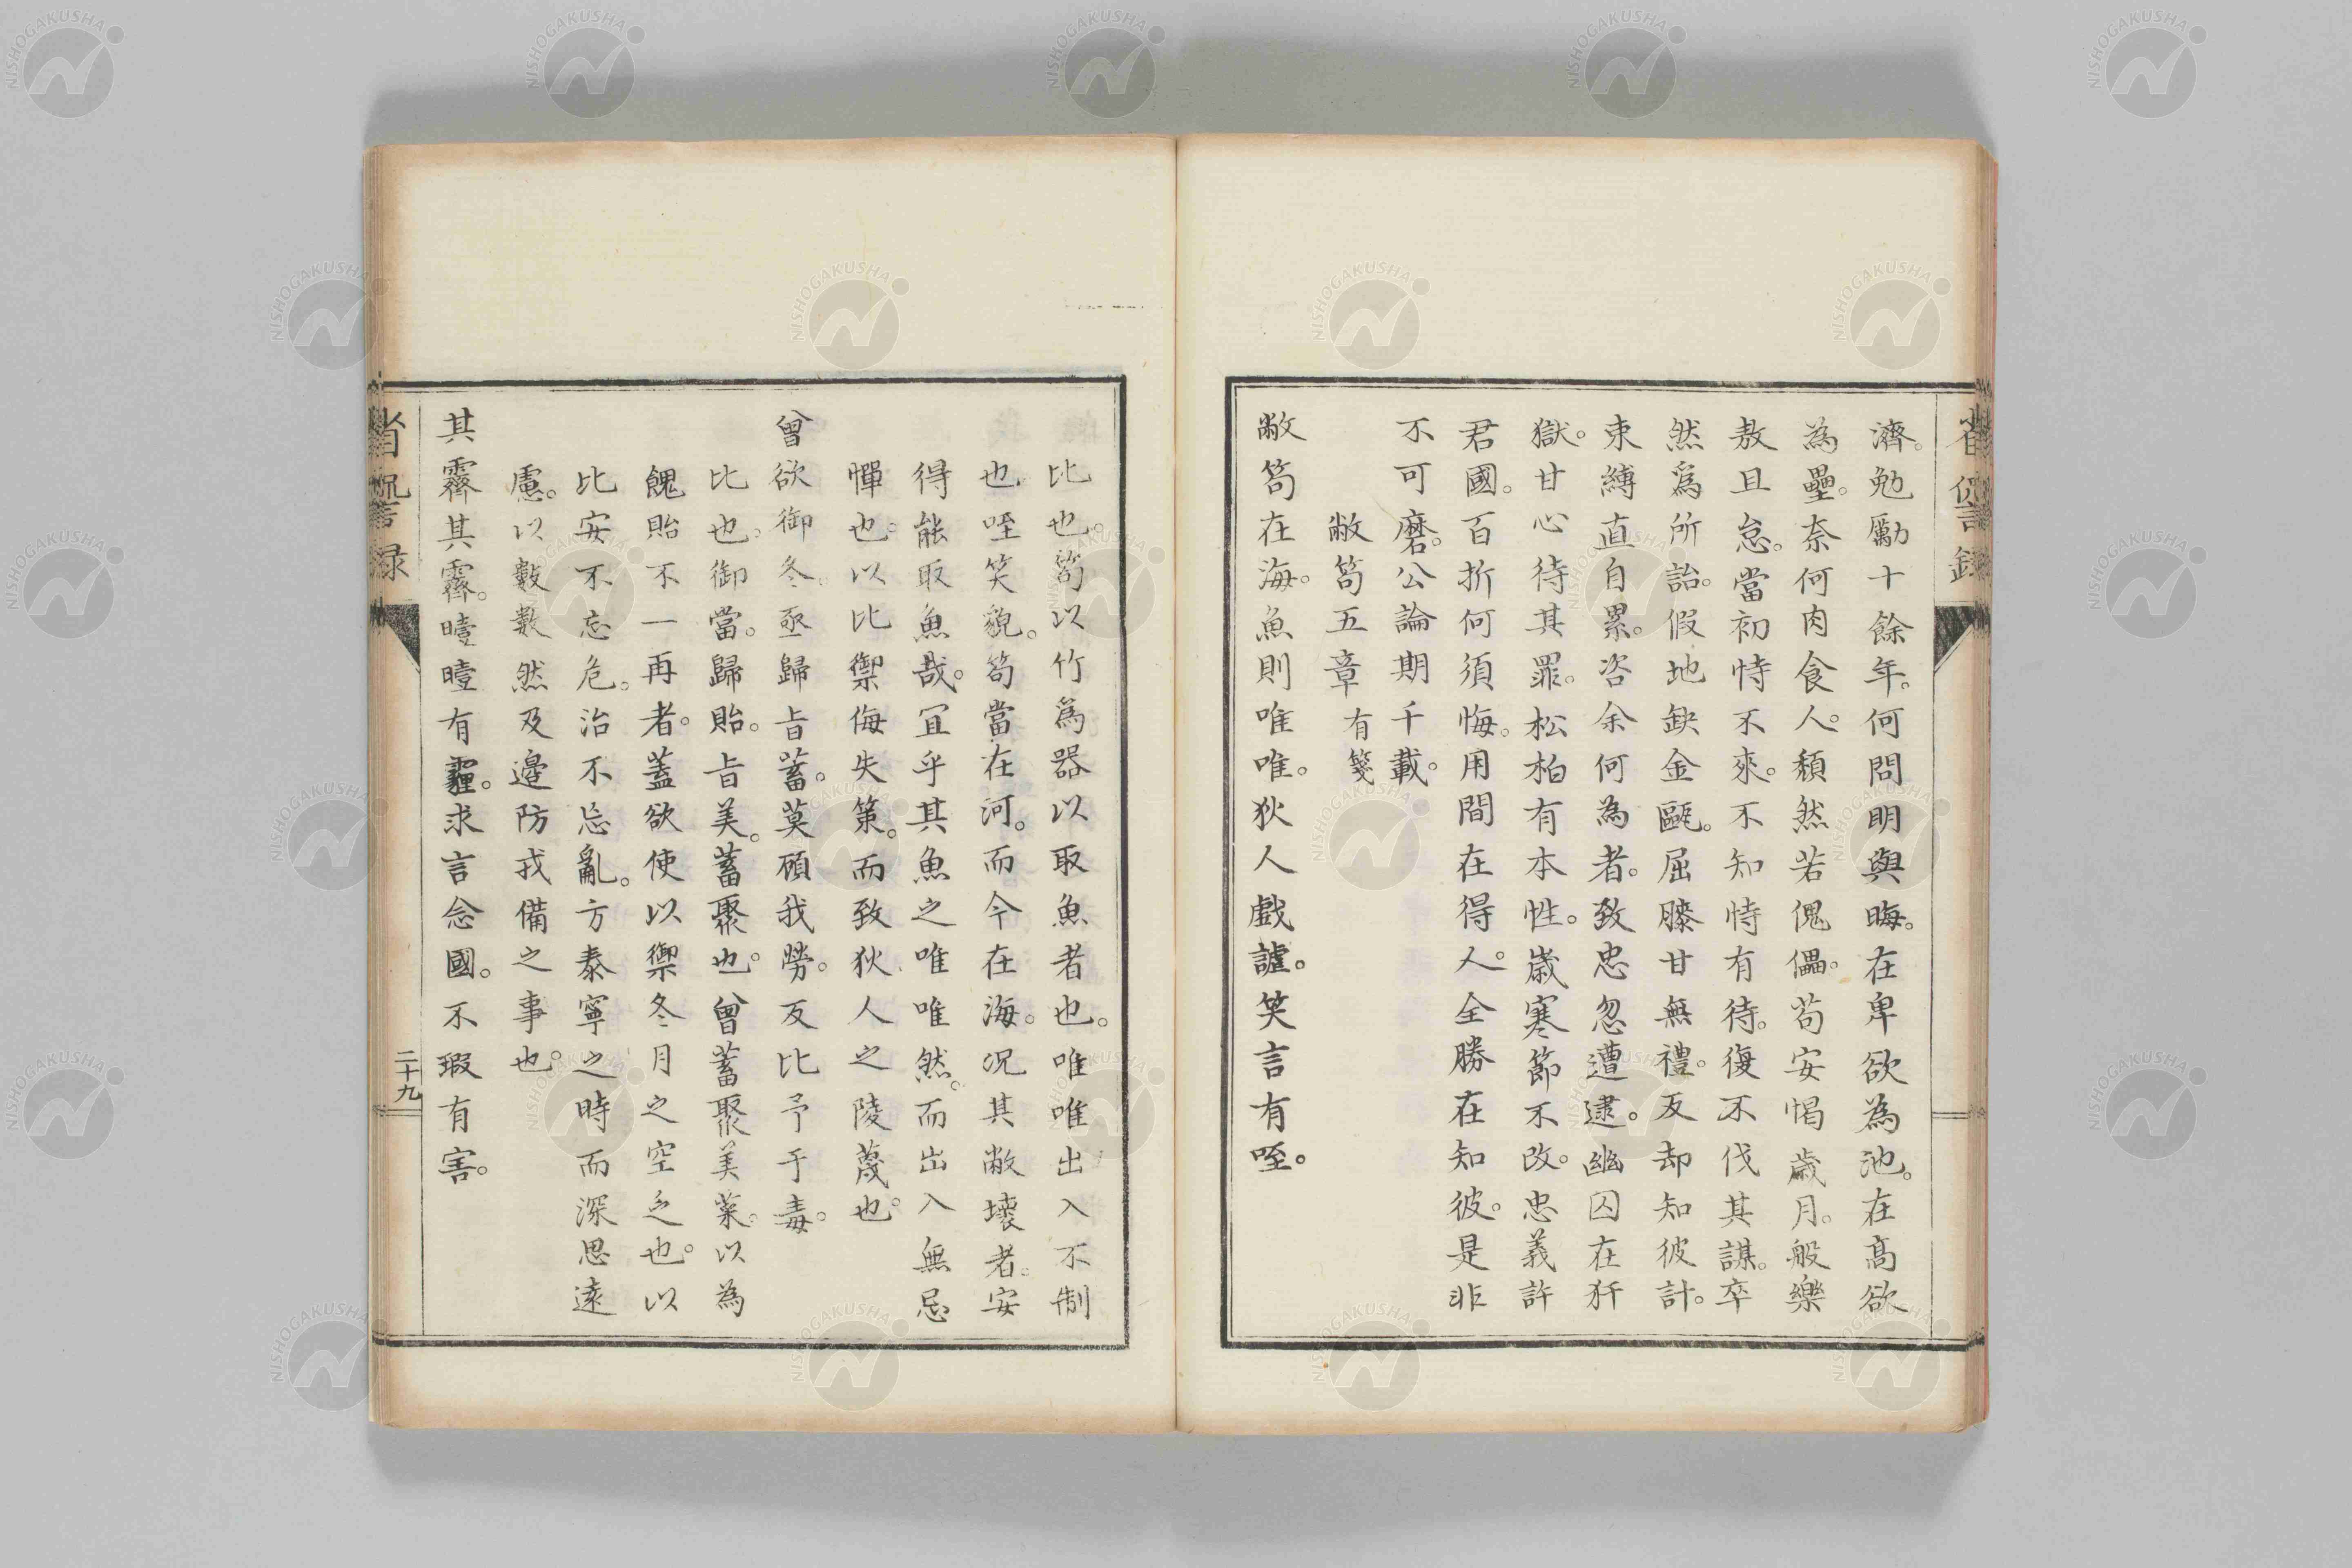 濟。勉勵十餘年。何問明與晦。在卑欲為池。在高欲
為壘。奈何肉食人。頹然若傀儡。苟安愒歲月。般樂
敖且怠。當初恃不來。不知恃有待。復不伐其謀。卒
然爲所詒。假地缺金甌。屈膝甘無禮。反却知彼計。
束縛直自累。咨余何為者。致忠忽遭逮。幽囚在犴
獄。甘心待其罪。松柏有本性。歲寒節不改。忠義許
君國。百折何須悔。用間在得人。全勝在知彼。是非
不可磨。公論期千載。
敝笱五章 有箋
敝笱在海。魚則唯唯。狄人戲謔。笑言有咥。
比也。笱以竹爲器以取魚者也。唯唯出入不制
也。咥笑貌。笱當在河。而今在海。況其敝壞者。安
得能取魚哉。宜乎其魚之唯唯然。而出入無忌
憚也。以比禦侮失策。而致狄人之陵蔑也。
曾欲御冬。亟歸旨蓄。莫頋我勞。反比予于毒。
比也。御當。歸貽。旨美。蓄聚也。曾蓄聚美菜。以為
餽貽不一再者。蓋欲使以禦冬月之空乏也。以
比安不忘危。治不忘亂。方泰寧之時而深思遠
慮。以數數然及邊防戎備之事也。
其霽其霽。曀曀有霾。求言念國。不瑕有害。
省諐録
二十九
NISHOGAKUSHA